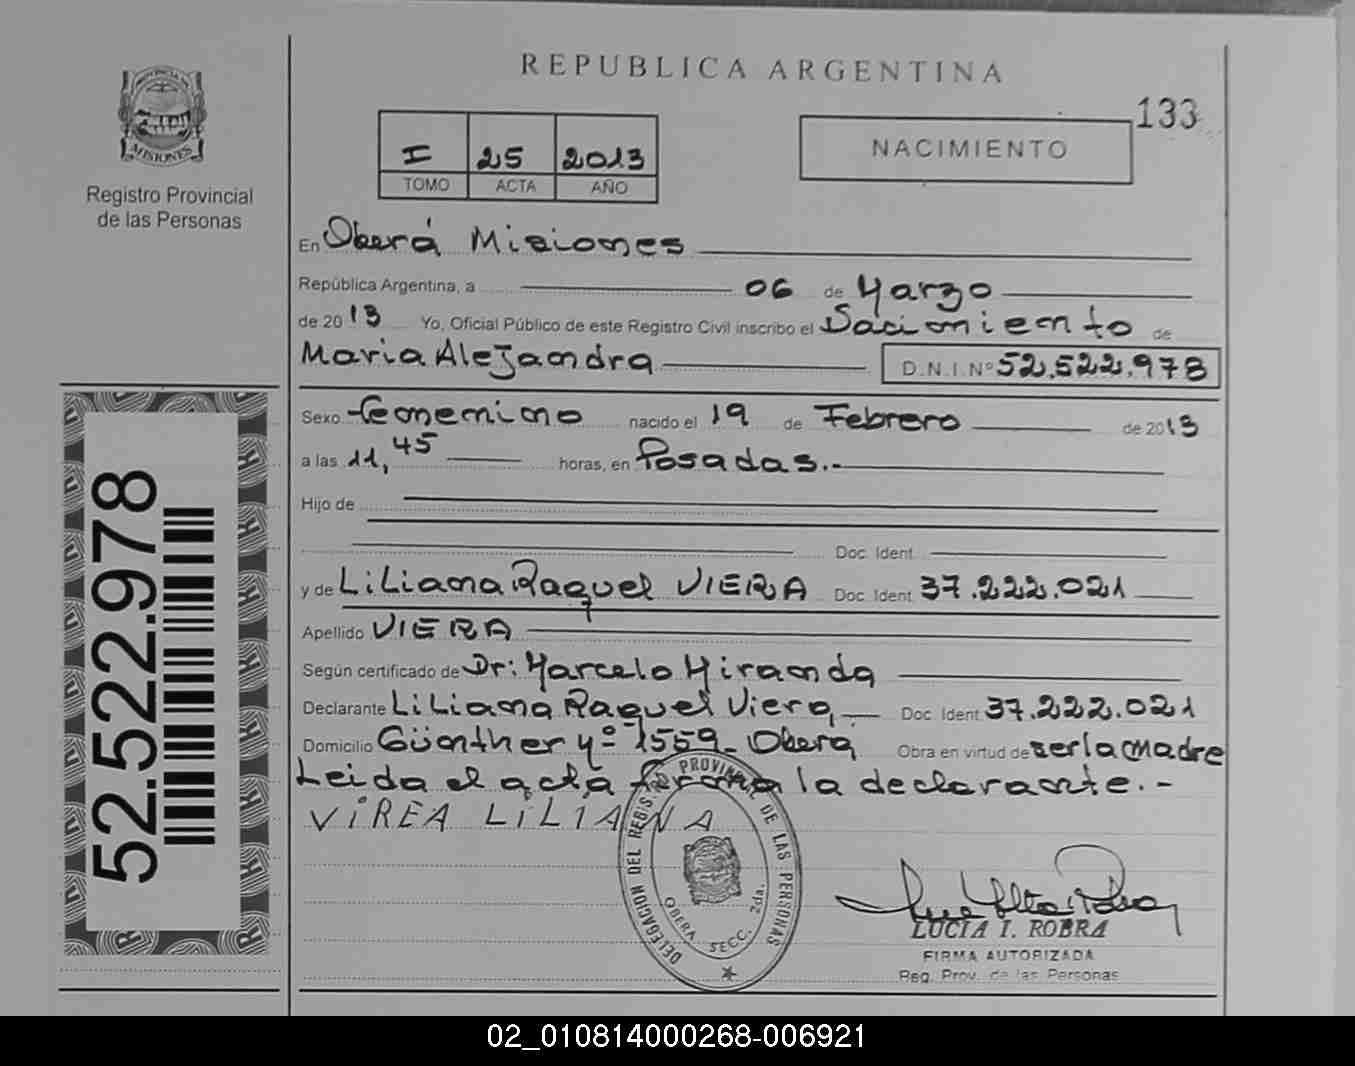 REPUBLICA ARGENTINA
133
MISIONES
Registro Provincial
de las Personas
I 25 2013
TOMO ACTA AÑO
NACIMIENTO
En Oberá Misiones
República Argentina, a 06 de Marzo
de 2013 Yo, Oficial Público de este Registro Civil inscribo el Nacimiento de
Maria Alejandra D.N.I. Nº 52.522.978
Sexo femenino nacido el 19 de Febrero de 2013
a las 11,45 horas, en Posadas.-
Hijo de
Doc. Ident.
y de Liliana Raquel VIERA Doc. Ident. 37.222.021
Apellido VIERA
Según certificado de Dr: Marcelo Miranda
Declarante Liliana Raquel Viera Doc. Ident. 37.222.021
Domicilio Günther Nº 1559- Oberá Obra en virtud de ser la madre
Leida el acta firma la declarante.-
VIREA LILIANA
DELEGACION DEL REGIS. PROVINCIAL DE LAS PERSONAS
OBERA SECC. 2da.
LUCIA I. ROBRA
FIRMA AUTORIZADA
Reg. Prov. de las Personas
52.522.978
02_010814000268-006921